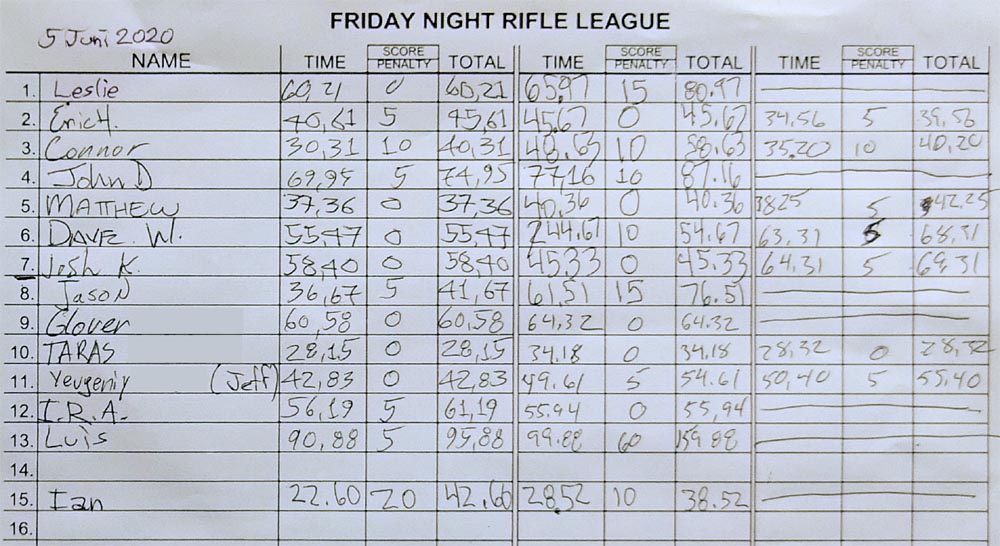 FRIDAY NIGHT RIFLE LEAGUE
5 Juni 2020
NAME TIME SCORE PENALTY TOTAL TIME SCORE PENALTY TOTAL TIME SCORE PENALTY TOTAL
1. Leslie 60,21 0 60,21 65.97 15 80.97
2. Eric H. 40,61 5 45,61 45.67 0 45.67 34,56 5 39,56
3. Connor 30,31 10 40,31 48.63 10 58.63 35.20 10 40,20
4. John D 69,95 5 74,95 77,16 10 87.16
5. MATTHEW 37,36 0 37,36 40,36 0 40.36 3825 5 42,25
6. DAVE W. 55,47 0 55,47 244.67 10 54.67 63,31 5 68,31
7. Josh K. 58,40 0 58,40 45.33 0 45.33 64,31 5 69,31
8. Jason 36,67 5 41,67 61,51 15 76.51
9. Glover 60,58 0 60,58 64,32 0 64.32
10. TARAS 28,15 0 28,15 34.18 0 34,18 28,32 0 28,32
11. Yevgeniy (Jeff) 42,83 0 42,83 49.61 5 54.61 50,40 5 55,40
12. I.R.A. 56,19 5 61,19 55.94 0 55,94
13. Luis 90,88 5 95,88 99.88 60 159.88
14.
15. Ian 22.60 20 42.60 28.52 10 38.52
16.